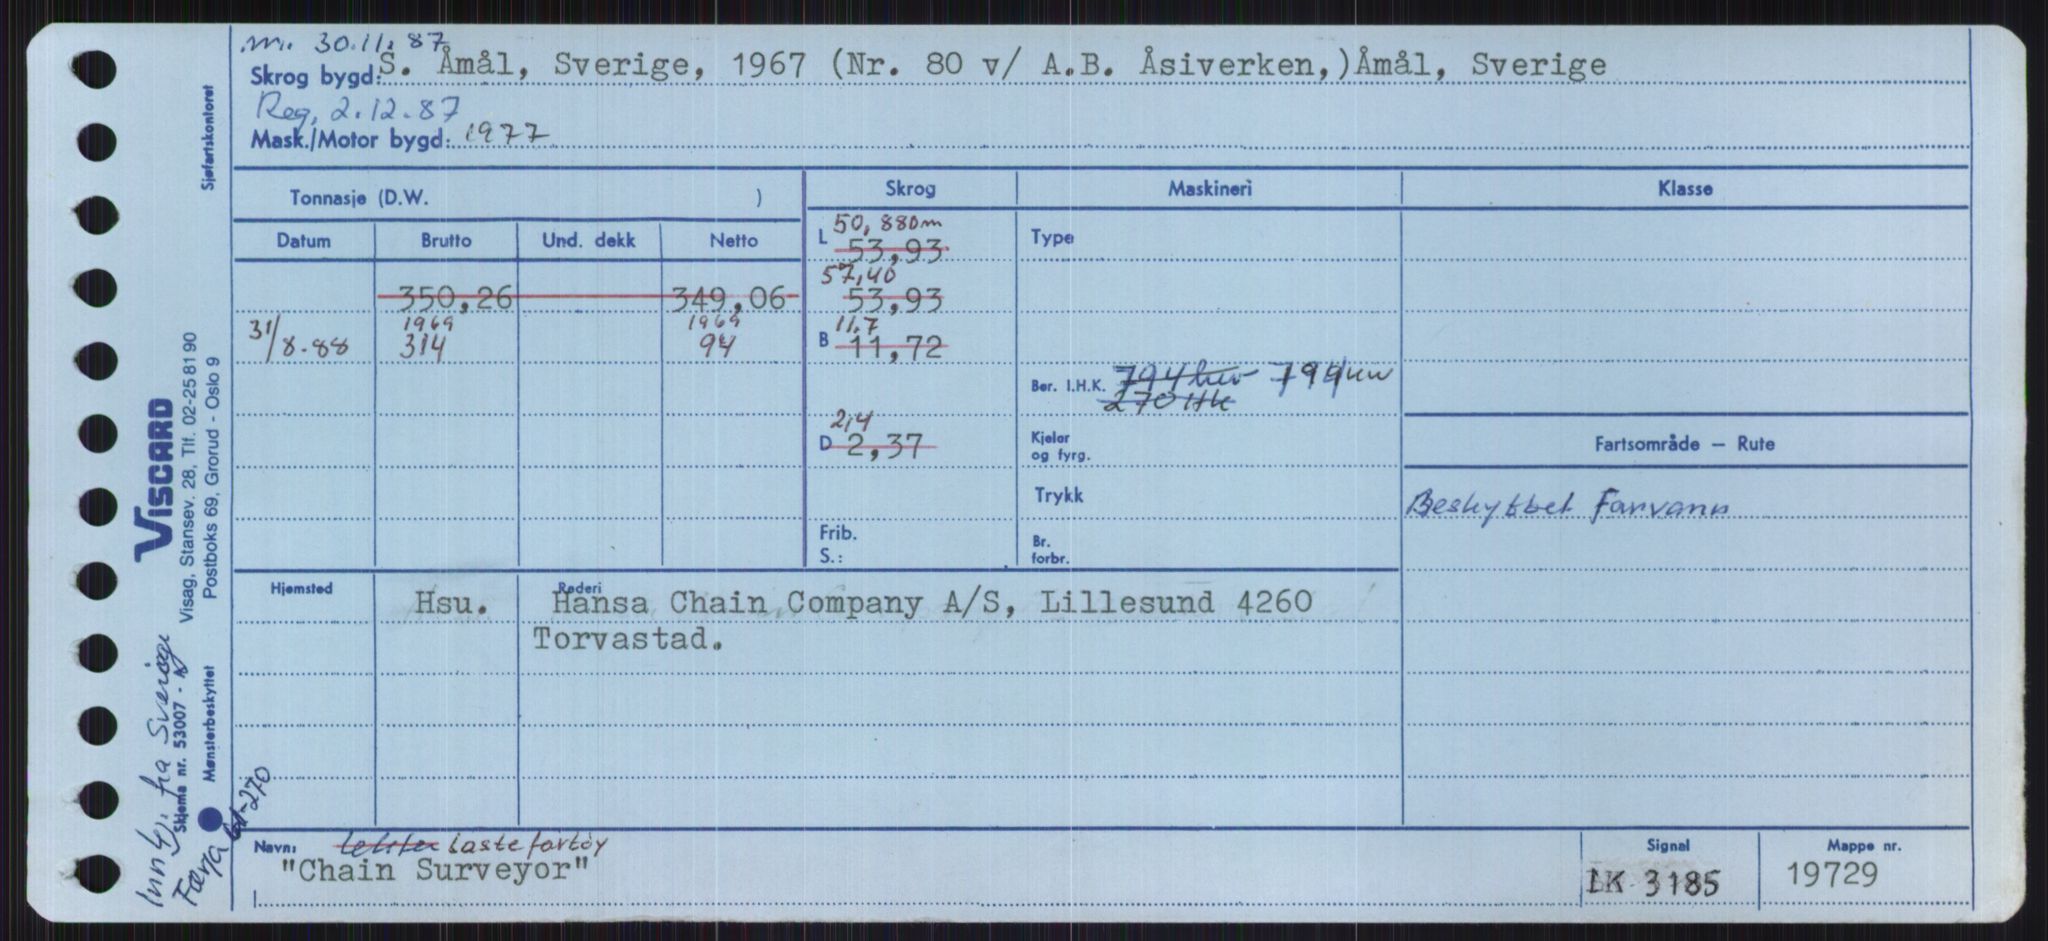 m. 30.11.87
Skrog bygd: S. Åmål, Sverige, 1967 (Nr. 80 v/ A.B. Åsiverken,)Åmål, Sverige
Reg. 2.12.87
Mask./Motor bygd: 1977
Tonnasje (D.W. )
Skrog
Maskineri
Klasse
Datum Brutto Und. dekk Netto
L 50,880m
53,93
Type
57,40
350,26 349,06 53,93
1969 1969
31/8-88 314 94
11,7
B 11,72
Ber. I.H.K. 794 kw 794 kw
270 Hk
2,4
D 2,37
Kjeler og fyrg.
Fartsområde – Rute
Trykk
Beskyttet Farvann
Frib.
S.:
Br. forbr.
Hjemsted
Rederi
Hsu. Hansa Chain Company A/S, Lillesund 4260
Torvastad.
Navn: lekter lastefartøy
"Chain Surveyor"
Signal
LK 3185
Mappe nr.
19729
Sjøfartskontoret
VISCARD
Visag, Stansev. 28, Tlf. 02-25 81 90
Postboks 69, Grorud - Oslo 9
Skjema nr. 53007 -
Mønsterbeskyttet
Innkj. fra Sverige
Færja 61-270